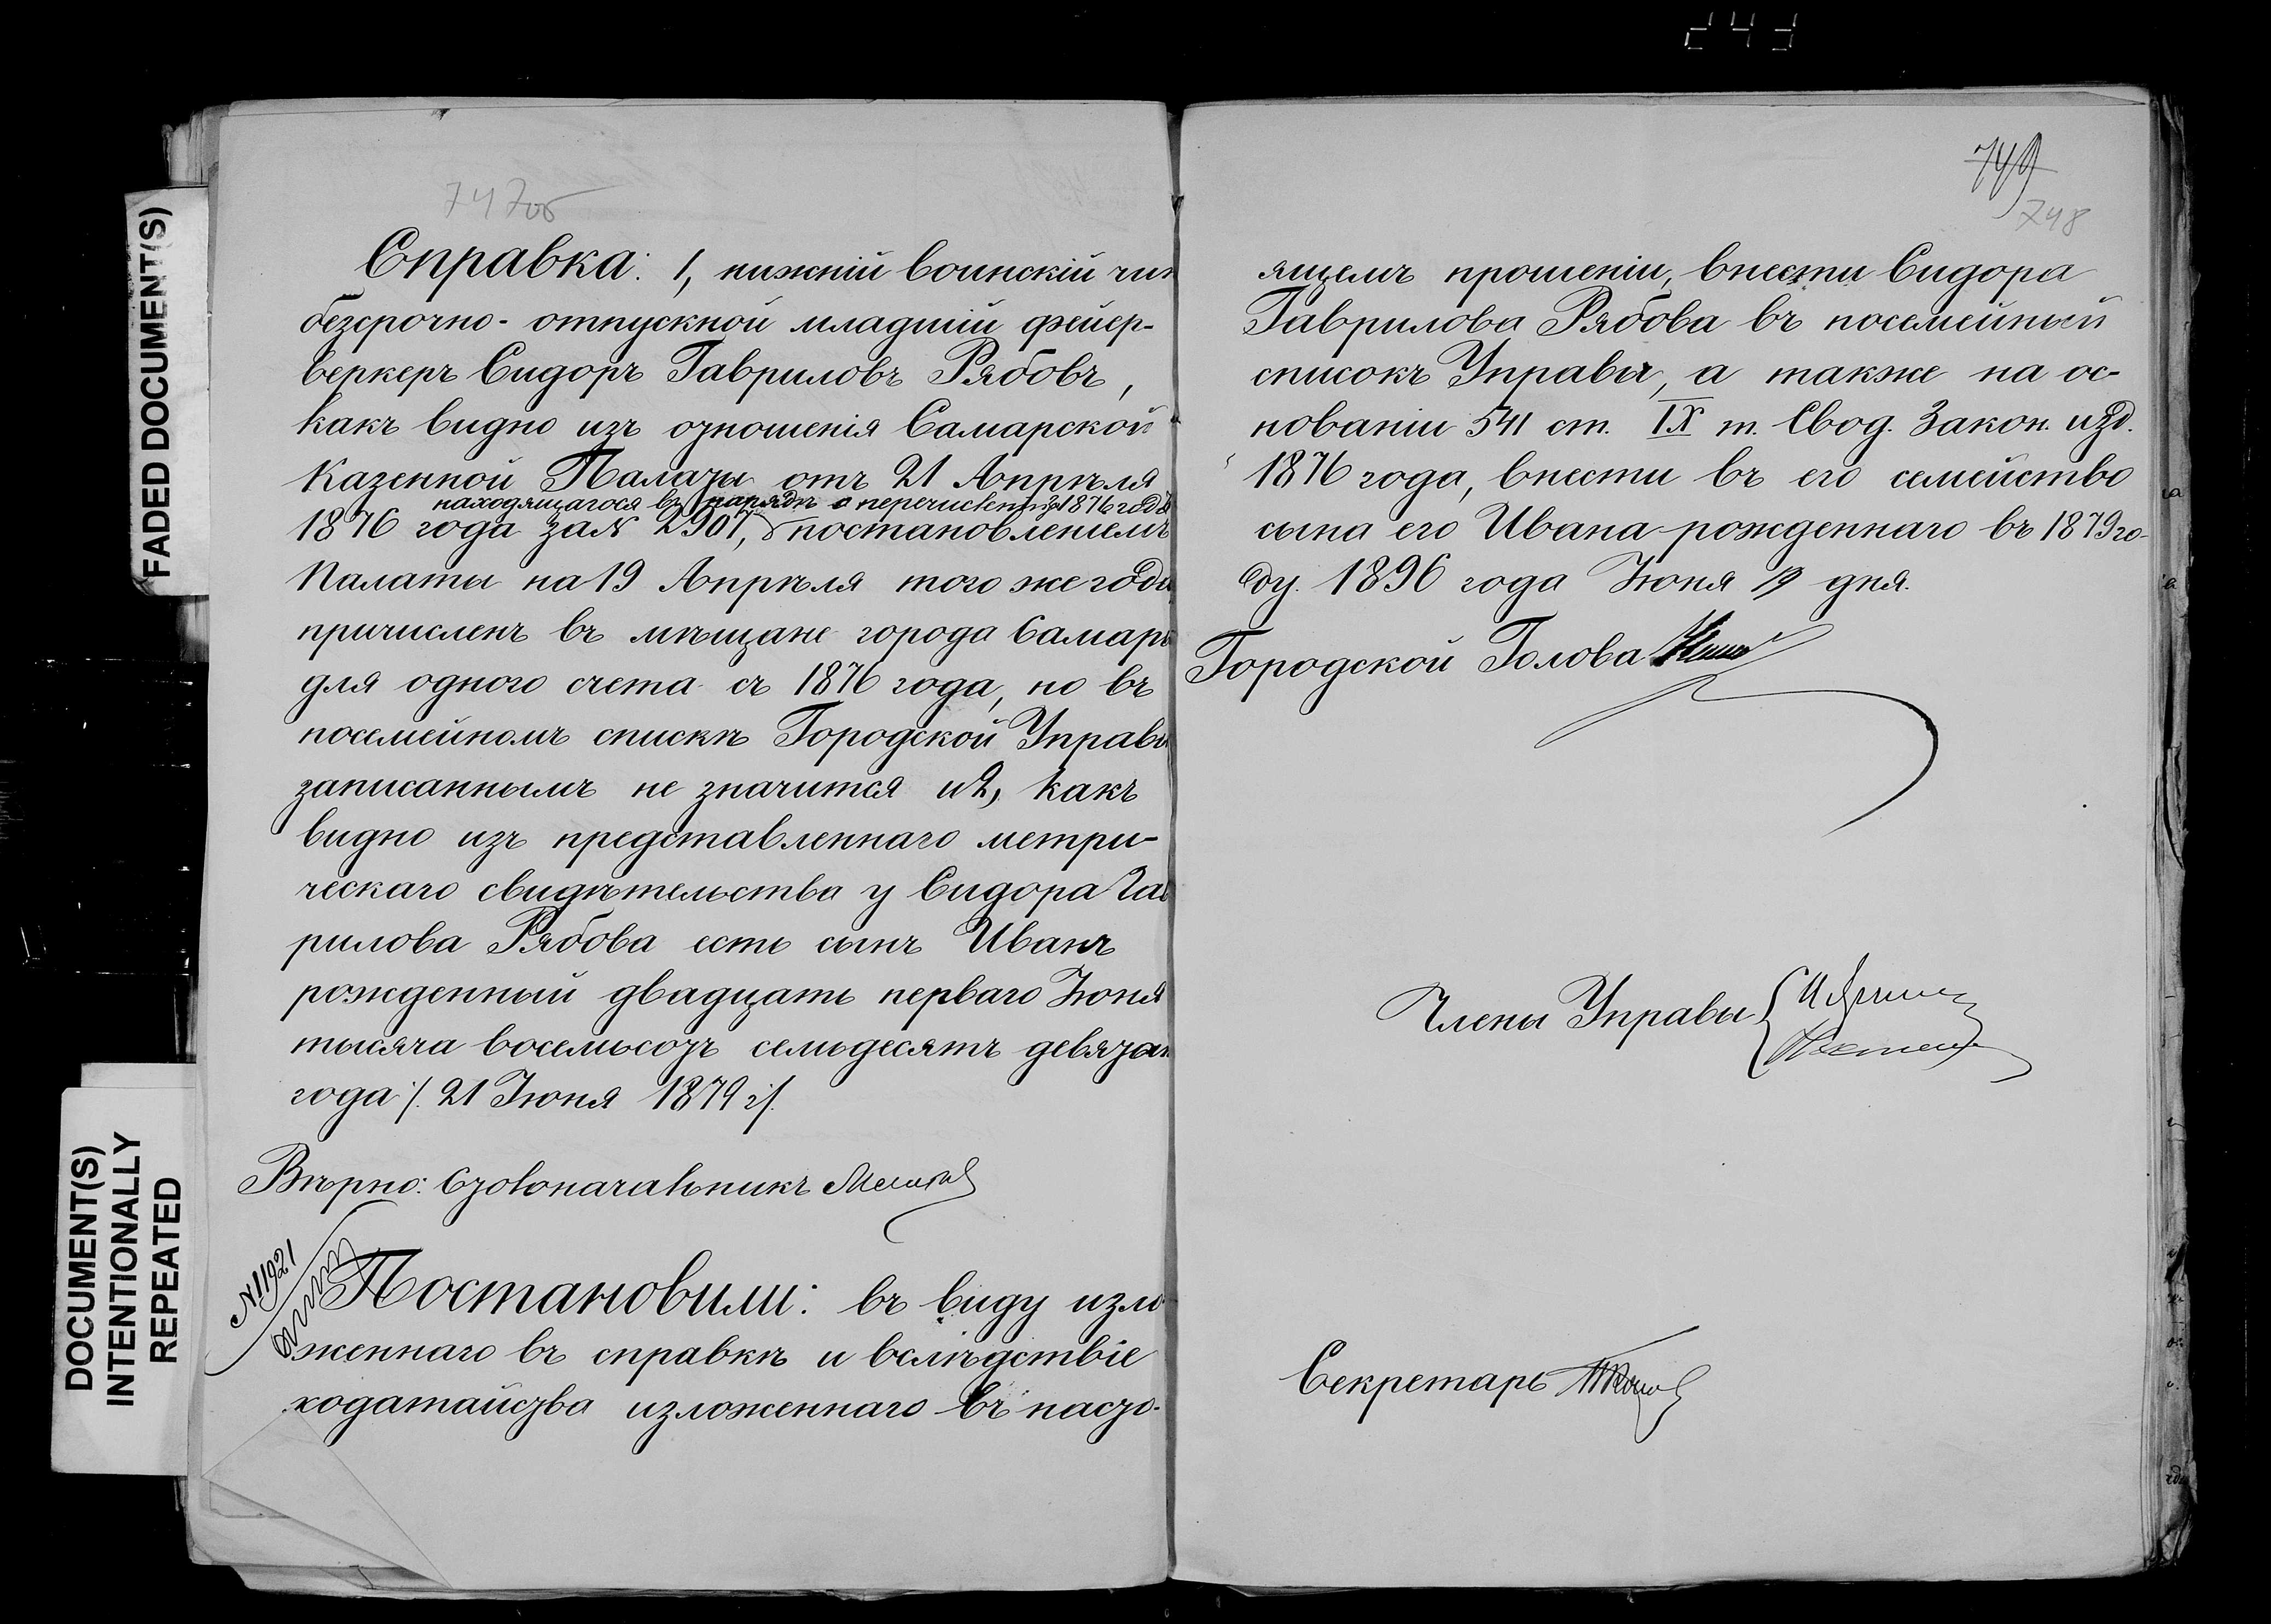 243
FADED DOCUMENT(S)
DOCUMENT(S)
INTENTIONALLY
REPEATED
747об
Справка: 1, нижній воинскій чин
безсрочно-отпускной младшій фейер-
веркеръ Сидоръ Гавриловъ Рябовъ,
какъ видно изъ отношенія Самарской
Казенной Палаты отъ 21 Апрѣля
находящагося въ нарядѣ о перечисленіи 1876 года
1876 года за № 2907, постановленіемъ
Палаты на 19 Апрѣля того же года
причисленъ въ мѣщане города Самары
для одного счета съ 1876 года, но въ
посемейномъ спискѣ Городской Управы
записаннымъ не значится и 2, какъ
видно изъ представленнаго метри-
ческаго свидѣтельства у Сидора Гав
рилова Рябова есть сынъ Иванъ
рожденный двадцать перваго Іюня
тысяча восемьсотъ семьдесятъ девятаго
года /. 21 Іюня 1879 г/.
Вѣрно: Столоначальникъ
№ 11921
Постановили: въ виду изло
женнаго въ справкѣ и вслѣдствіе
ходатайства изложеннаго въ насто-
749
748
ящемъ прошеніи, внести Сидора
Гаврилова Рябова въ посемейный
списокъ Управы, а также на ос-
нованіи 541 ст. IX т. Свод. Закон. изд.
1876 года, внести въ его семейство
сына его Ивана рожденнаго въ 1879 го-
ду. 1896 года Іюня 19 дня.
Городской Голова
Члены Управы
Секретарь